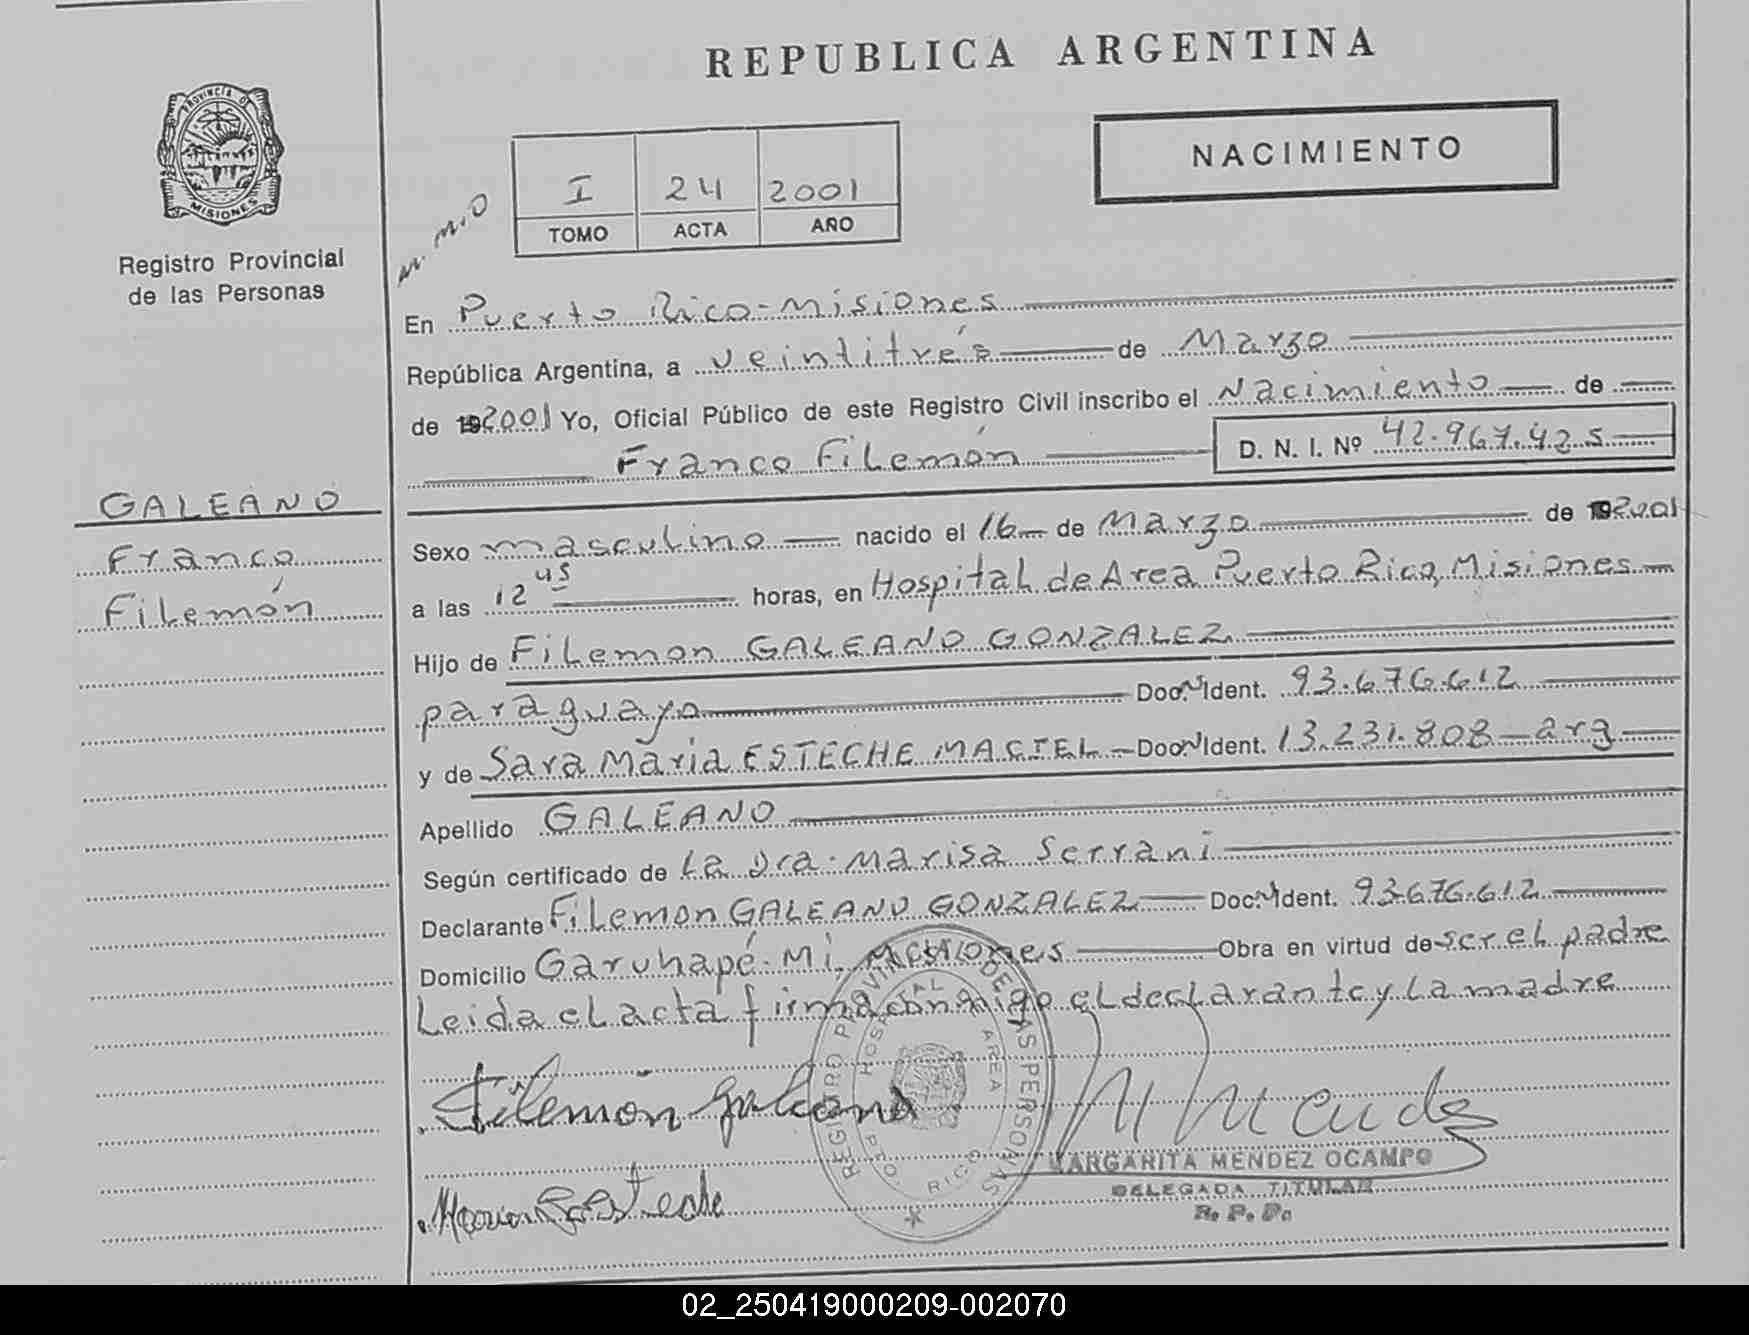 REPUBLICA ARGENTINA
PROVINCIA DE
MISIONES
Registro Provincial
de las Personas
NACIMIENTO
I 24 2001
TOMO ACTA AÑO
En Puerto Rico - Misiones
República Argentina, a veintitrés de Marzo
de 192001 Yo, Oficial Público de este Registro Civil inscribo el Nacimiento de
Franco Filemón D. N. I. Nº 42.967.425
GALEANO
Franco
Filemón
Sexo masculino nacido el 16 de Marzo de 192001
a las 12 45 horas, en Hospital de Area Puerto Rico, Misiones
Hijo de Filemon GALEANO GONZALEZ
paraguayo Doc. Ident. 93.676.612
y de Sara Maria ESTECHE MACIEL Doc. Ident. 13.231.808 - arg
Apellido GALEANO
Según certificado de La Dra. Marisa Serrani
Declarante Filemon GALEANO GONZALEZ Doc. Ident. 93.676.612
Domicilio Garuhapé - Mi, Misiones Obra en virtud de ser el padre
Leida el acta firma conmigo el declarante y La madre
Filemon Galeano
REGISTRO PROVINCIAL DE LAS PERSONAS
HOSPITAL AREA
PTO. RICO
MARGARITA MENDEZ OCAMPO
DELEGADA TITULAR
R. P. P.
02_250419000209-002070